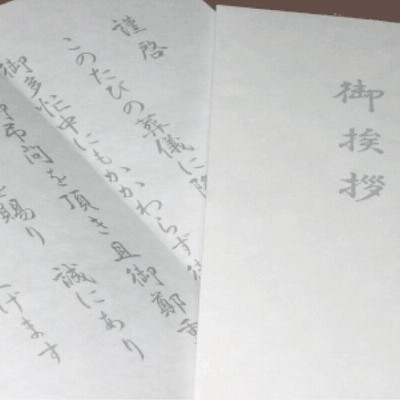 御挨拶
謹啓
このたびの葬儀に際
御多忙中にもかかわらず
御弔問を頂き且御鄭重
賜り 誠にあり
げます